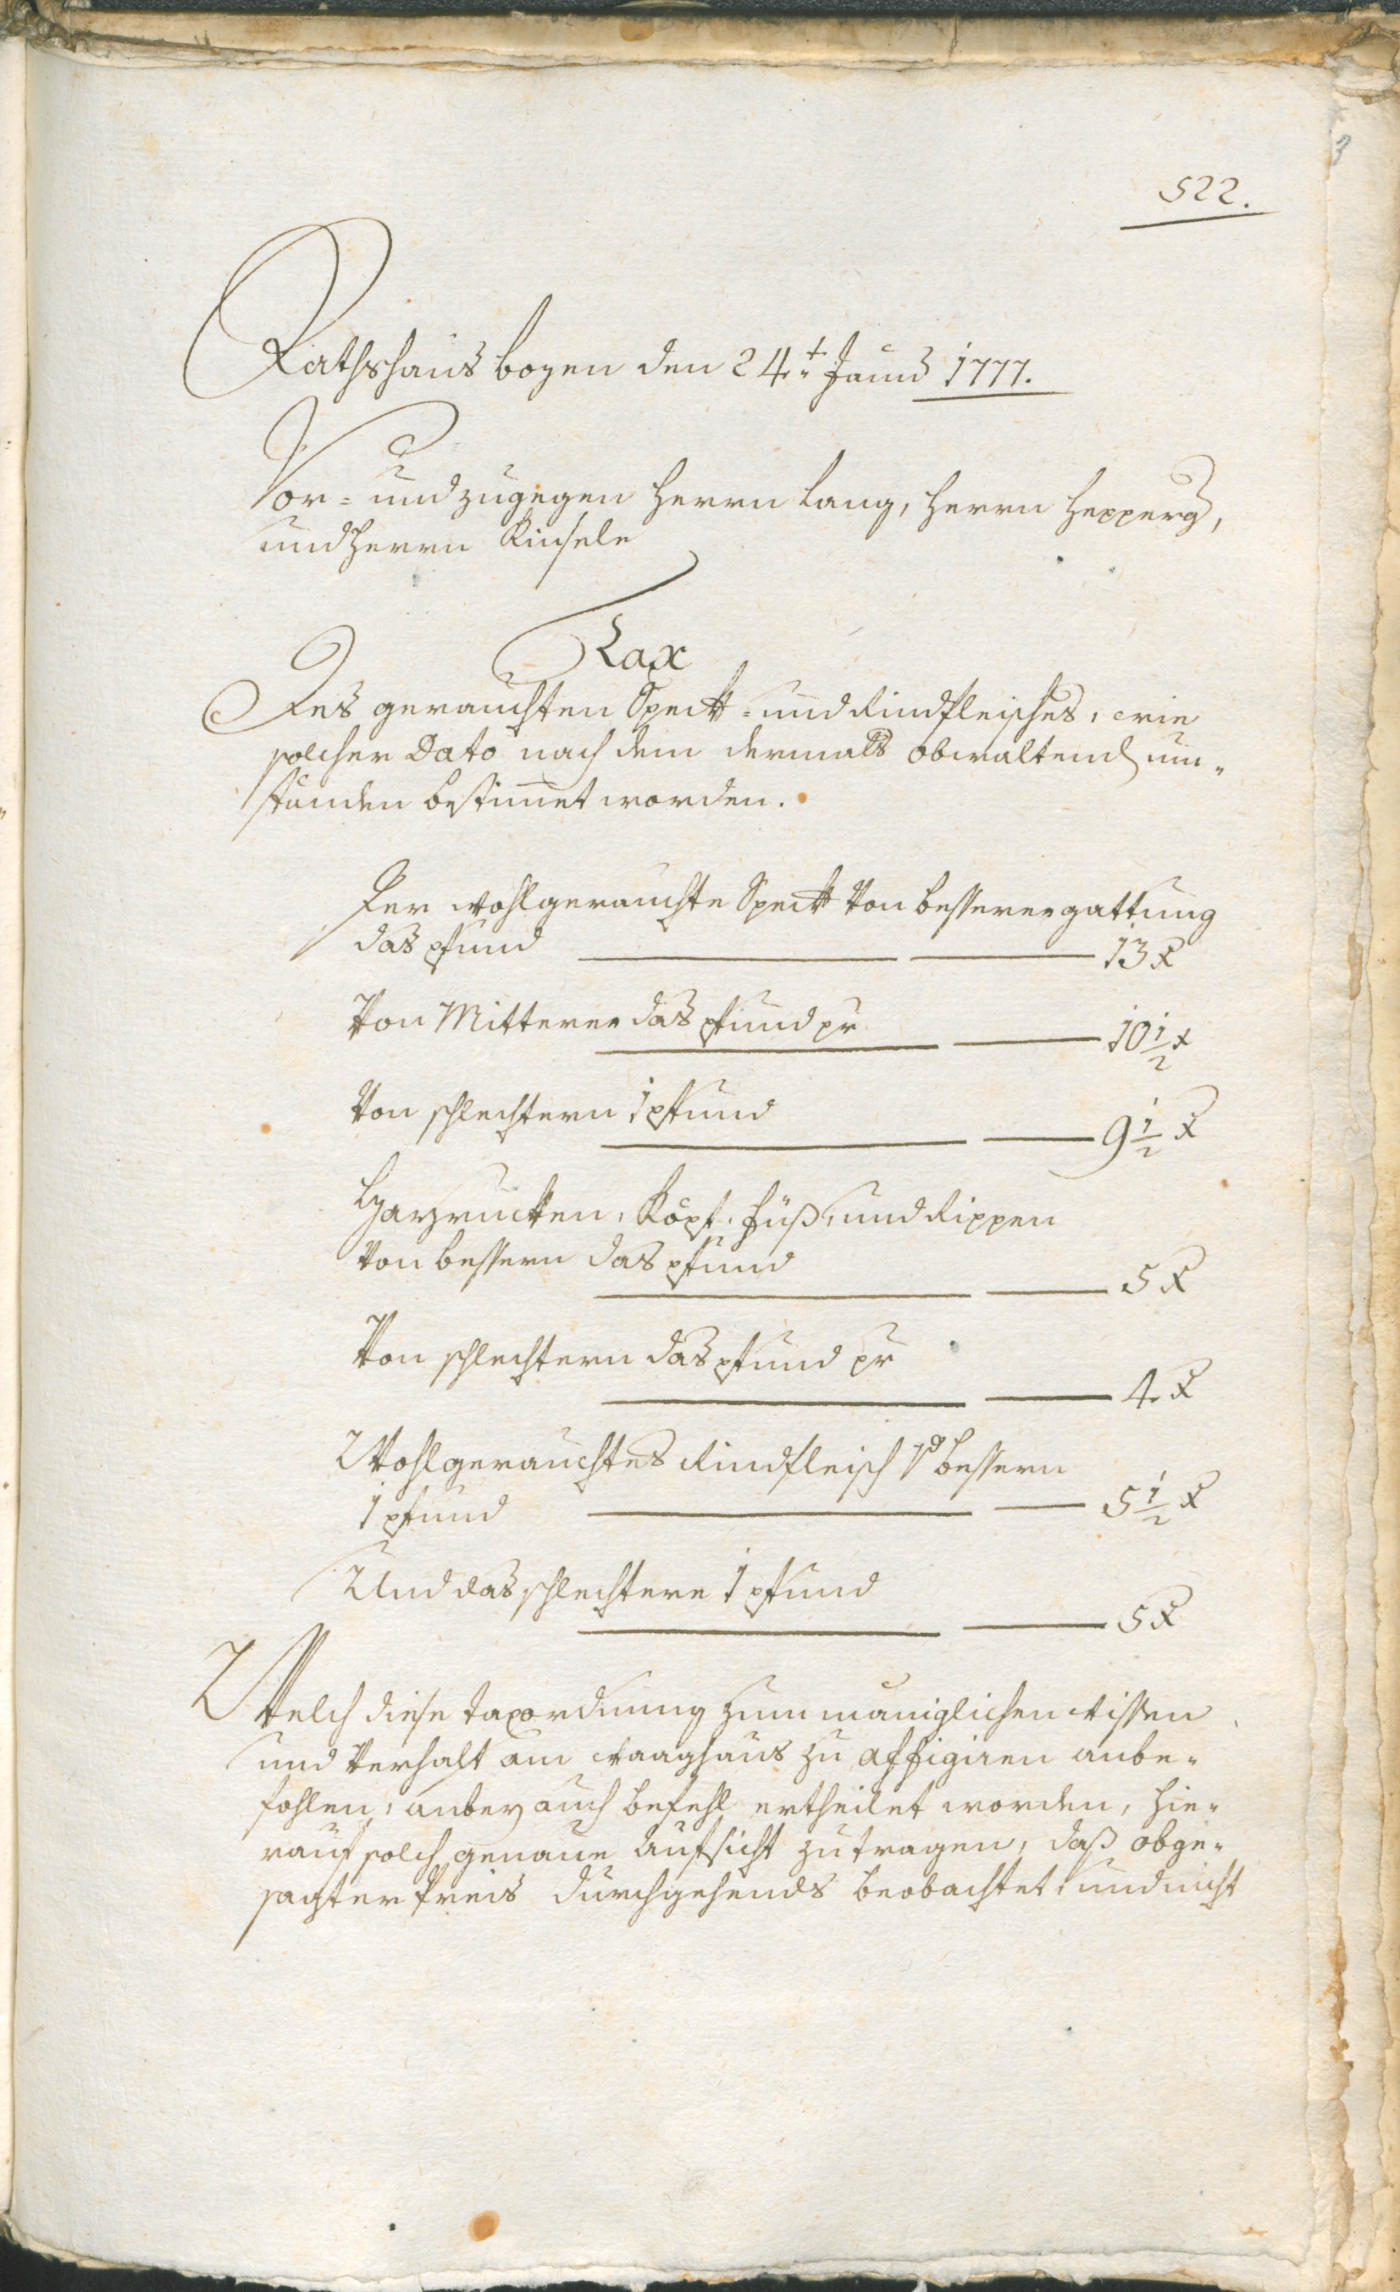 522.
Rathshaus bozen den 24.t Jauns 1777.
Vor- und zugegen Herrn Lang, Herrn Hepperg,
und Herrn Kinsele
Tax
Des gerauchten Speckh- und Rindfleisches, wie
solcher Dato nach dem dermals obwaltend um-
standen bestimet worden.
Der wohlgerauchte Speckh von besserer gattung
das pfund 13 x
Von Mitterer das pfund pr 10 1/2 x
Von schlechtern 1 pfund 9 1/2 x
Harzruckhen, Köpf, Füß, und Rippen
von bessern das pfund 5 x
Von schlechtern das pfund pr 4 x
Wohlgerauchtes Rindfleisch bessern
1 pfund 5 1/2 x
Und das schlechtere 1 pfund 5 x
Welch diese Taxordnung zum maniglichen wissen
und verhalt am Waaghaus zu affigiren anbe-
fohlen, anbey auch befehl ertheilet worden, hie-
rauf solch genaue Aufsicht zutragen, daß obge-
sagter Preis durchgehends beobachtet, und nicht